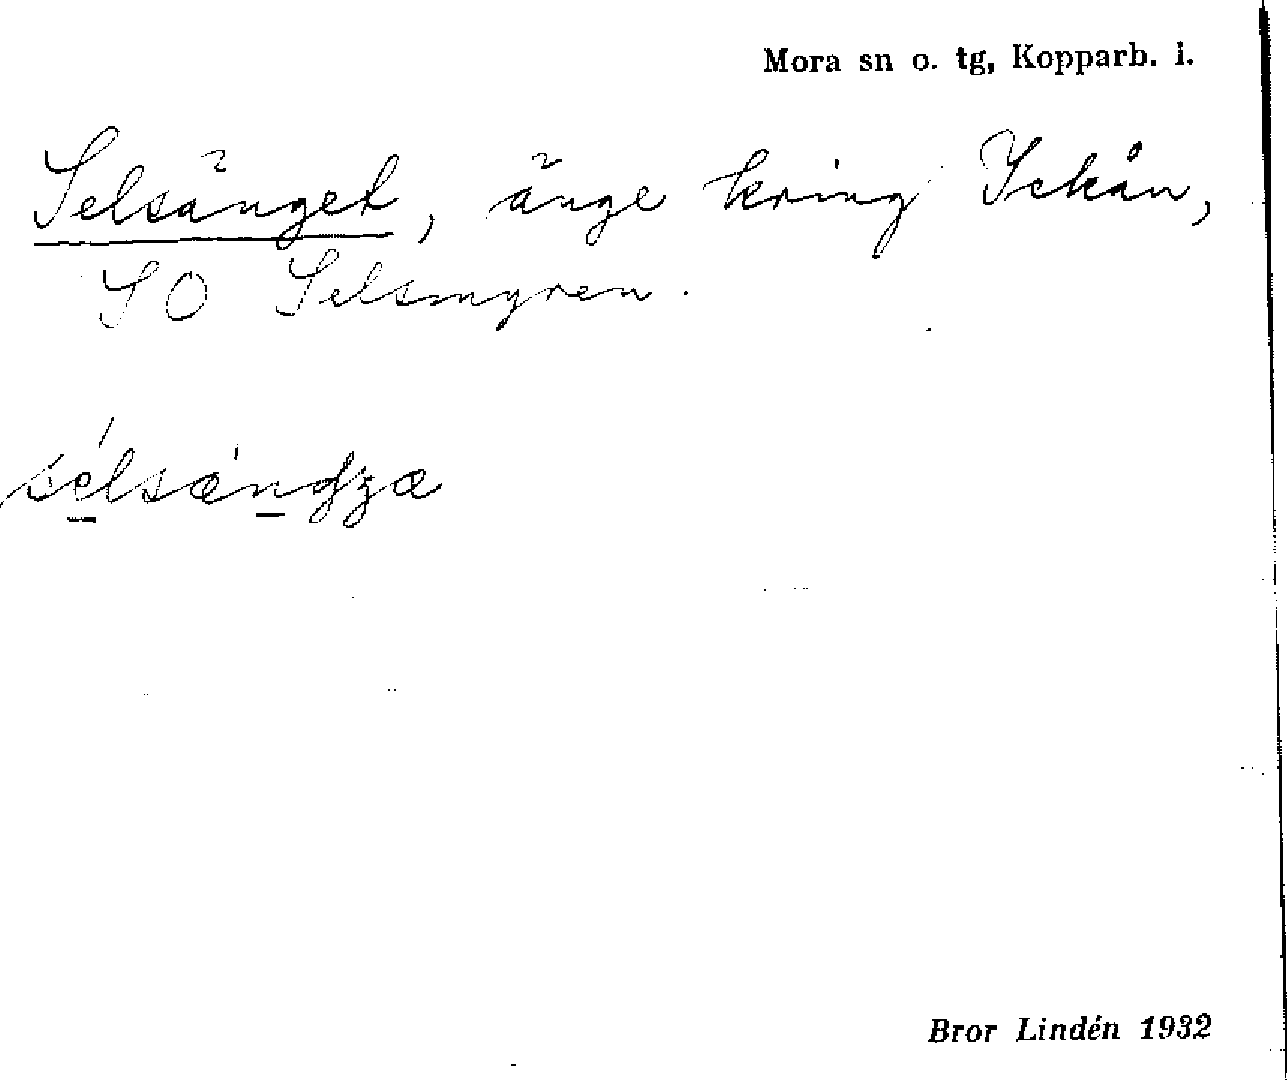 Mora sn o. tg, Kopparb. l.
Selsänget, änge kring Ickån,
SO Selsmyren.
sélsǽndzæ
Bror Lindén 1932